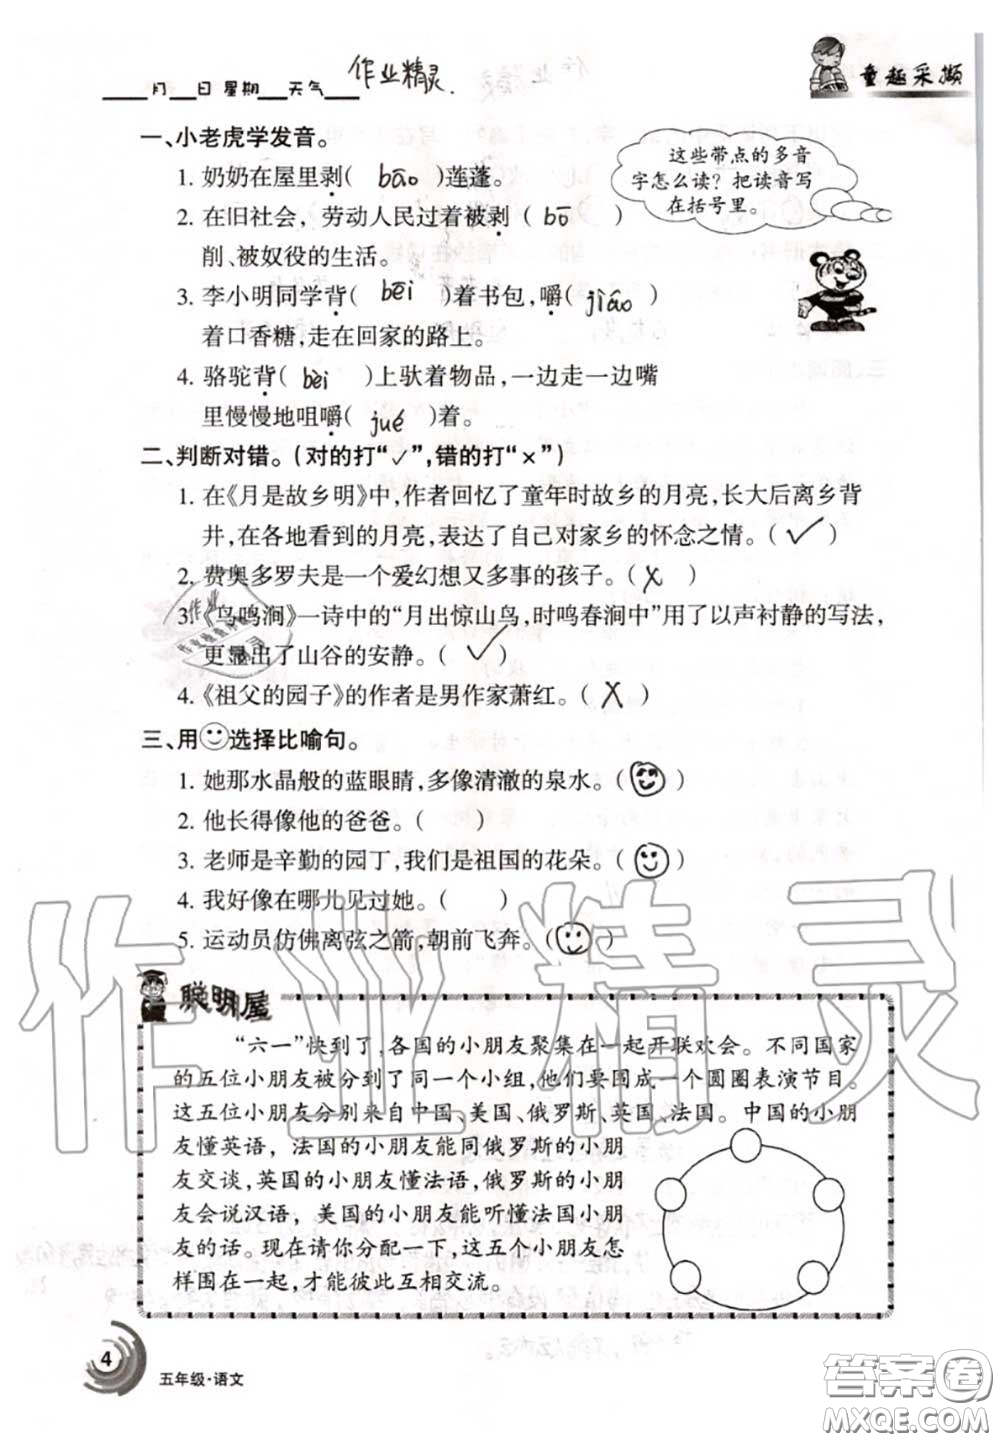 童趣采撷
___月__日 星期___天气___ 作业精灵.
一、小老虎学发音。
这些带点的多音
字怎么读？把读音写
在括号里。
1. 奶奶在屋里剥( bāo )莲蓬。
2. 在旧社会，劳动人民过着被剥（ bō ）
削、被奴役的生活。
3. 李小明同学背( bēi )着书包，嚼( jiáo )
着口香糖，走在回家的路上。
4. 骆驼背( bèi )上驮着物品，一边走一边嘴
里慢慢地咀嚼( jué )着。
二、判断对错。（对的打“✓”，错的打“×”）
1. 在《月是故乡明》中，作者回忆了童年时故乡的月亮，长大后离乡背
井，在各地看到的月亮，表达了自己对家乡的怀念之情。( ✓ )
2. 费奥多罗夫是一个爱幻想又多事的孩子。( X )
3.《鸟鸣涧》一诗中的“月出惊山鸟，时鸣春涧中”用了以声衬静的写法，
更显出了山谷的安静。( ✓ )
4.《祖父的园子》的作者是男作家萧红。( X )
三、用☺选择比喻句。
1. 她那水晶般的蓝眼睛，多像清澈的泉水。( ☺ )
2. 他长得像他的爸爸。( )
3. 老师是辛勤的园丁，我们是祖国的花朵。( ☺ )
4. 我好像在哪儿见过她。( )
5. 运动员仿佛离弦之箭，朝前飞奔。( ☺ )
作业精灵
聪明屋
“六一”快到了，各国的小朋友聚集在一起开联欢会。不同国家
的五位小朋友被分到了同一个小组，他们要围成一个圆圈表演节目。
这五位小朋友分别来自中国、美国、俄罗斯、英国、法国。中国的小朋
友懂英语，法国的小朋友能同俄罗斯的小朋
友交谈，英国的小朋友懂法语，俄罗斯的小朋
友会说汉语，美国的小朋友能听懂法国小朋
友的话。现在请你分配一下，这五个小朋友怎
样围在一起，才能彼此互相交流。
4
五年级·语文
答案圈
MXQE.COM